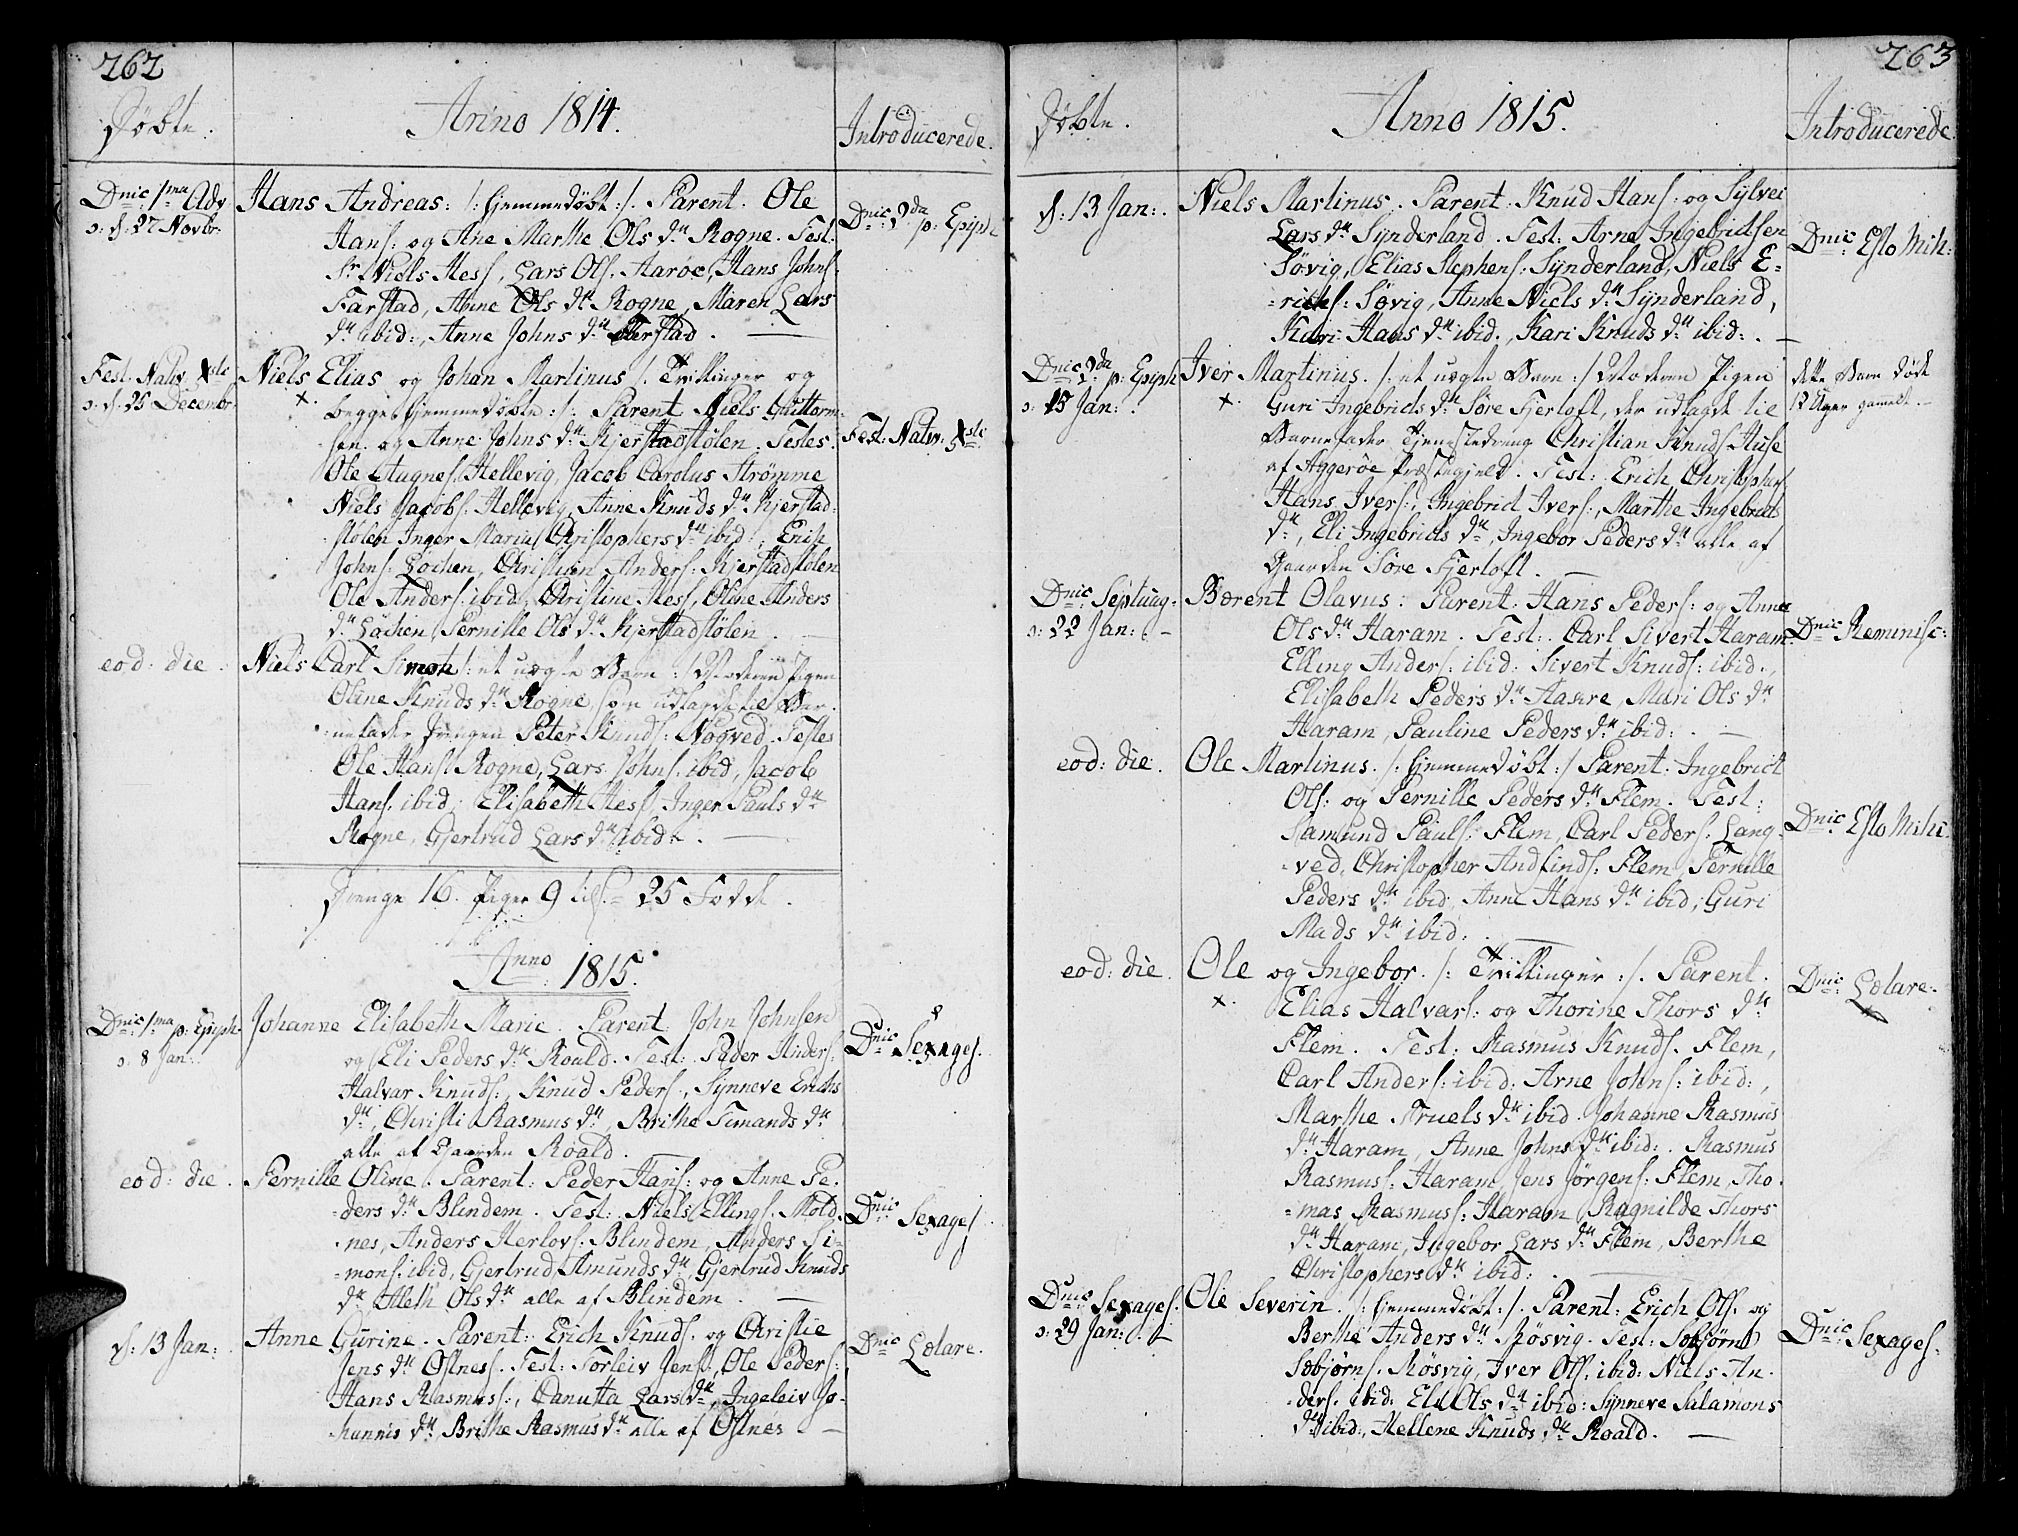 262
Døbte.
Anno 1814.
Introducerede.
Dnic 1ma Adv
ɔ: d: 27 Novbr:
Hans Andreas: /: hjemmedøbt :/. Parent. Ole
Hans: og Ane Marthe Ols dtr Rogne. Test:
Sr Niels Hess, Lars Ols. Aarøe, Hans Johns:
Farstad, Anne Ols dtr Rogne, Maren Lars
dtr ibid:, Anne Johns dtr
Dnic: 2da p: Epiph
Fest: Nativ Xsti
ɔ: d: 25 Decembr
Niels Elias og Johan Martinus /: Tvillinger og
begge hjemmedøbte :/: Parent Niels Guttorm-
sen og Anne Johns dtr Kjerstadstølen. Testes.
Ole Augnes. Hellevig, Jacob Carolus Strømme
Niels Jacobs: Hellevig, Anne Knuds dtr Kjerstad-
stølen Inger Maria Christophers dtr ibid:, Erich
Johns: Løchen, Christian Anders: Kjerstadstølen
Ole Anders: ibid, Christine Hess, Oline Anders
dtr Løchen, Pernille Ols dtr Kjerstadstølen.
Fest: Nativ: Xsti
eod: die.
Niels Carl Simon /: et uægte Barn :/ Moderen Pigen
Oline Knuds dtr Rogne, som udlagde til Bar-
nefader Drengen Peter Knuds: Nogved. Testes
Ole Hans: Rogne, Lars Johns. ibid, Jacob
Hans. ibid; Elisabeth Hess, Inger Pauls dtr
Rogne, Gjertrud Lars dtr ibid.
Drenge 16. Piger 9 tils. = 25 Fødte.
Anno 1815.
Dnic: 1ma p: Epiph.
ɔ: 8 Jan:
Johanne Elisabeth Marie. Parent. John Johnsen
og Eli Peders dtr Roald. Test: Peder Hinders:
Halvar Knuds:, Knud Peders:, Synneve Erichs
dtr, Christi Rasmus dtr, Brithe Simands dtr
alle af Gaarden Roald.
Dnic: Sexages.
eod: die.
Pernille Oline. Parent: Peder Hans: og Anne Pe-
ders dtr Blindem. Test: Niels Ellings. Mold-
nes, Anders Herlovs. Blindem, Anders Si-
mons. ibid, Gjertrud Amunds dtr, Gjertrud Knuds
dtr Aleth Ols dtr alle af Blindem.
Dnic: Sexages
d: 13 Jan:
Anne Gurine. Parent: Erich Knuds. og Christie
Jens dtr Ostnes. Test: Torleiv Jens:, Ole Peders:
Hans Rasmus:, Danutta Lars dtr, Ingeleiv Jo-
hannis dtr, Brithe Rasmus dtr alle af Ostnes
Dnic: Lætare.
263
Døbte.
Anno 1815.
Introducerede
d: 13 Jan:.
Niels Martinus. Parent. Knud Hans: og Sylvei
Lars dtr Synderland. Test: Arne Ingebrictsen
Søvig, Elias Stephens: Synderland, Niels E-
richs: Søvig, Anne Niels dtr Synderland,
Kari Hans dtr ibid., Kari Knuds dtr ibid:.
Dnic: Esto Mih:
Dnic: 2da p: Epiph
ɔ: 15 Jan:.
Iver Martinus. /: et uægte Barn :/ Moderen Pigen
Guri Ingebricts dtr Søre Fjertoft, der udlagde til
Barnefader Tjenestedreng Christian Knuds Huse
af Aggerøe Præstegjeld. Test: Erich Christophers
Hans Ivers:, Ingebrict Ivers:, Marthe Ingebricts
dtr, Eli Ingebricts dtr, Ingebor Peders dtr alle af
Gaarden Søre Fjertoft.
dette Barn døde
12 Uger gamelt.
Dnic: Septuag.
ɔ: 22 Jan:.
Bærent Olavus. Parent. Hans Peders: og Anne
Ols dtr Haram. Test: Carl Sivert Haram
Elling Anders. ibid: Sivert Knuds: ibid.,
Elisabeth Peders dtr Haxre, Mari Ols dtr
Haram, Pauline Peders dtr ibid:.
Dnic: Reminisc:
eod: die:
Ole Martinus. /: hjemmedøbt :/ Parent. Ingebrict
Ols: og Pernille Peders dtr Flem. Test:
Samund Pauls. Flem, Carl Peders. Lang-
ved, Christopher Andfinds: Flem, Pernille
Peders dtr ibid, Anne Hans dtr ibid; Guri
Mads dtr ibid:.
Dnic: Esto Mihi
eod: die.
Ole og Ingebor. /: Tvillinger :/. Parent.
Elias Halvars: og Thorine Thors dtr
Flem. Test: Rasmus Knuds. Flem,
Carl Anders: ibid: Arne Johns: ibid:,
Marthe Truels dtr ibid. Johanne Rasmus
dtr Haram, Anne Johns dtr ibid:. Rasmus
Rasmus: Haram, Jens Jørgens: Flem, Tho-
mas Rasmus: Haram, Ragnilde Thors
dtr Haram, Ingebor Lars dtr Flem, Berthe
Christophers dtr ibid:.
Dnic: Lætare.
Dnic: Sexages.
ɔ: 29 Jan:.
Ole Severin. /: hjemmedøbt :/. Parent: Erich Ols. og
Berthe Anders dtr Røsvig. Test: Sebjørn
Sebjørns. Røsvig, Iver Ols. ibid: Niels An-
ders. ibid: Eli Ols dtr ibid: Synneve Salamons
dtr ibid:, Hellene Knuds dtr Roald.
Dnic: Sexages.